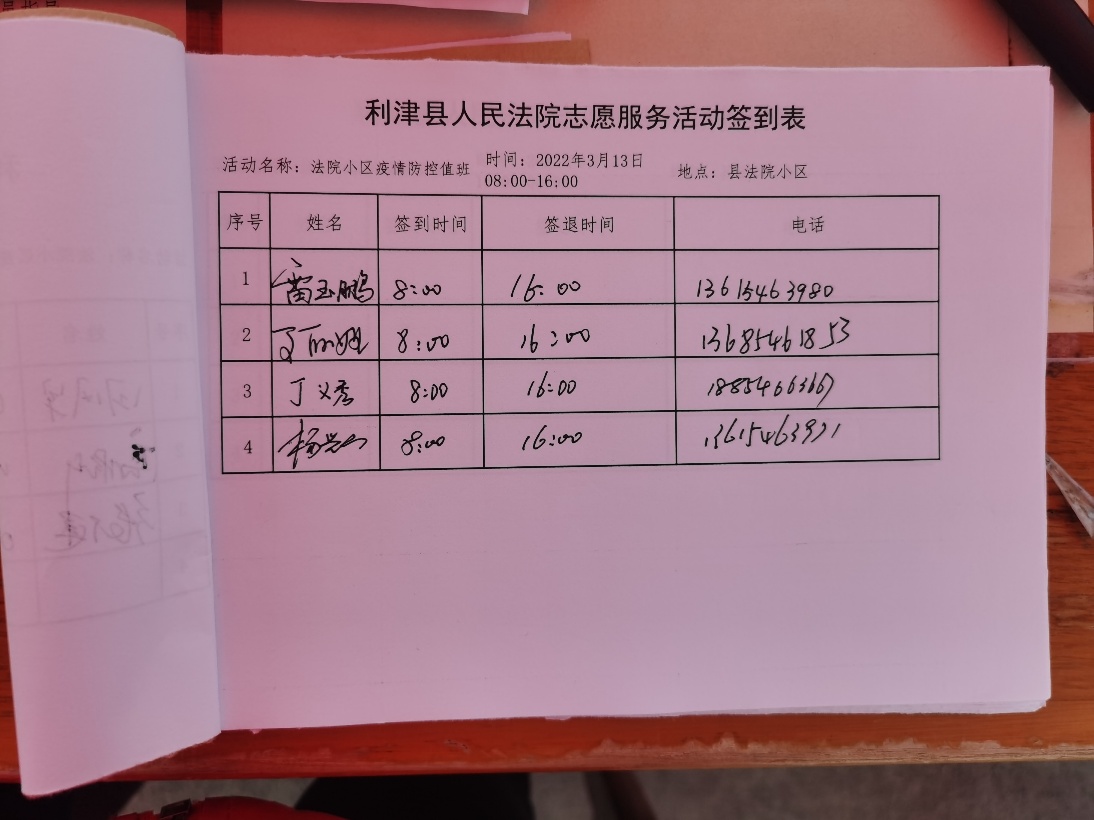 利津县人民法院志愿服务活动签到表
活动名称：法院小区疫情防控值班 时间：2022年3月13日 08:00-16:00 地点：县法院小区
序号 姓名 签到时间 签退时间 电话
1 雷玉鹏 8:00 16:00 13615463980
2 8:00 16:00 13685461853
3 丁义秀 8:00 16:00 18854663667
4 8:00 16:00 13615463971